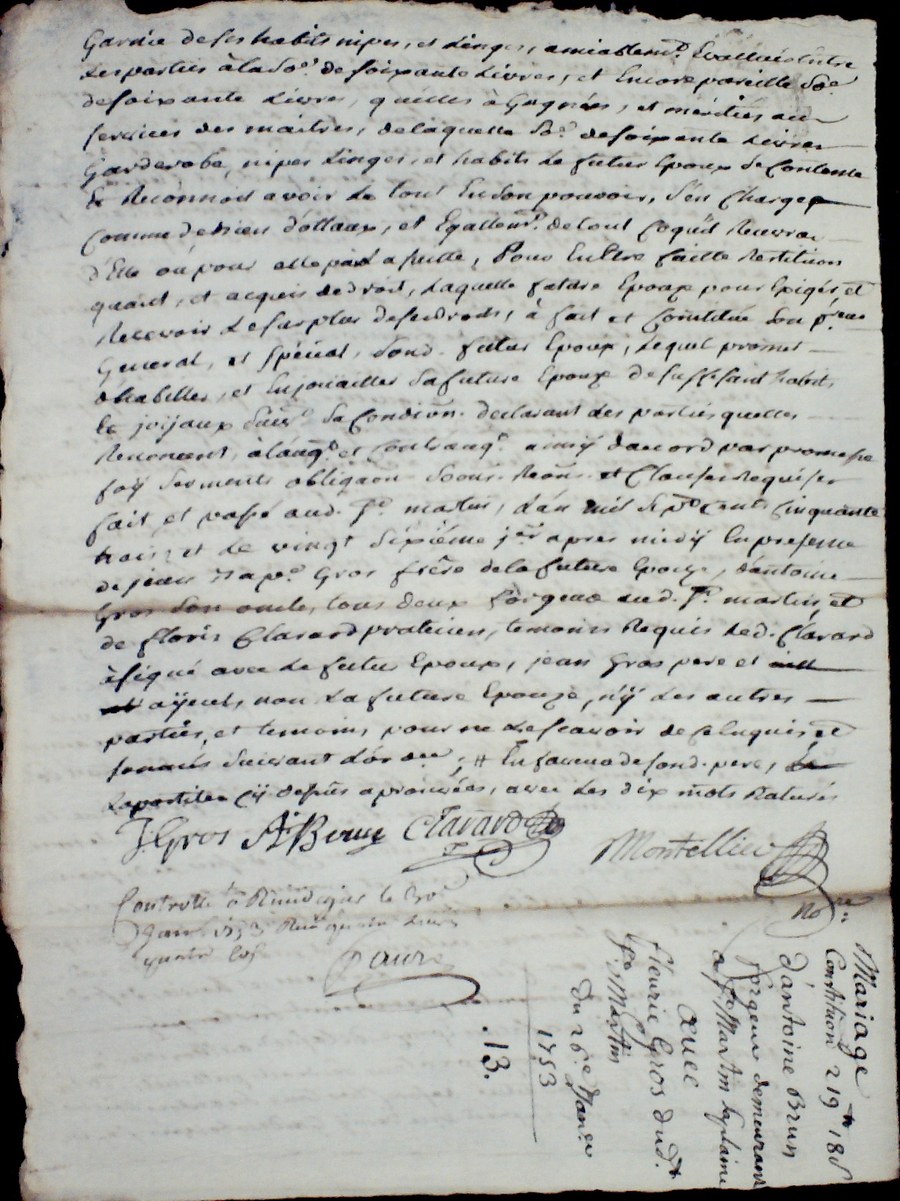 Garnie de ses habits nipes, et Linges, amiablemt. Evallués Entre
Les parties à la So.e de soixante Livres, et Encore pareille So.e
de soixante Livres, quelles à Gagnées, et méritées au
services des maitres, de laquelle So.e de soixante Livres
Garderobe, nipes Linges, et habits Le futur Epoux Se Contente
& Reconnoit avoir Le tout En Son pouvoir, S'en Charge
Comme de bien d'ottaux, et Egallemt. de tout Ce quil Recevra
d'Elle ou pour elle par La suitte, Pour En Etre faitte Restitution
quant, et acquis de Droit, Laquelle future Epouse pour Exiger et
Recevoir Le surplus de ses droits, à fait et Constitué Son p.reur
General, et Spécial, Sond. futur Epoux, Lequel promet
d'habiller, et Enjoüailler Sa future Epouze de suffisant habits
Et joijaux Suiv.t Sa Condiôn. declarant des parties quelles
Renoncent, à aucuns Contraux, ainsy d'accord par promesse
foÿ Serments obligaôn Soum. Renôn. et Clauses Requises
fait et passé aud. S.t martin, L'an mil Sept Cents Cinquante
trois et Le vingt Sixiéme j.er apres midÿ En presence
de jean Bap.e Gros frère de la future Epouze, d'antoine
Gros Son oncle, tous deux forgeur aud. S.t martin, et
de Floris Clavard praticien, temoins Requis Led. Clavard
à signé avec Le futur Epoux, jean Gros pere et
aÿeuls, non La future Epouze, nÿ Les autres
parties, et temoins pour ne Le sçavoir de ce Enquis, et
sommés Suivant L'ordce ; # En faveur de sond. pere,
La postille cÿ dessus aprouvées, avec Les dix mots Raturés
J. Gros A. Brun Clavard
Montellier
No.re
Controllé à Rivedegier le 30
Janv. 1753 Reçu quatre Livres
quatre Sols
Mariage
Constitution 219 tt 18 s
d'antoine Brun
forgeur demeurant
a S.t Martin la plaine
avec
Fleurie Gros dud.t
S.t Martin
Du 26.e Janv.er
1753
.13.